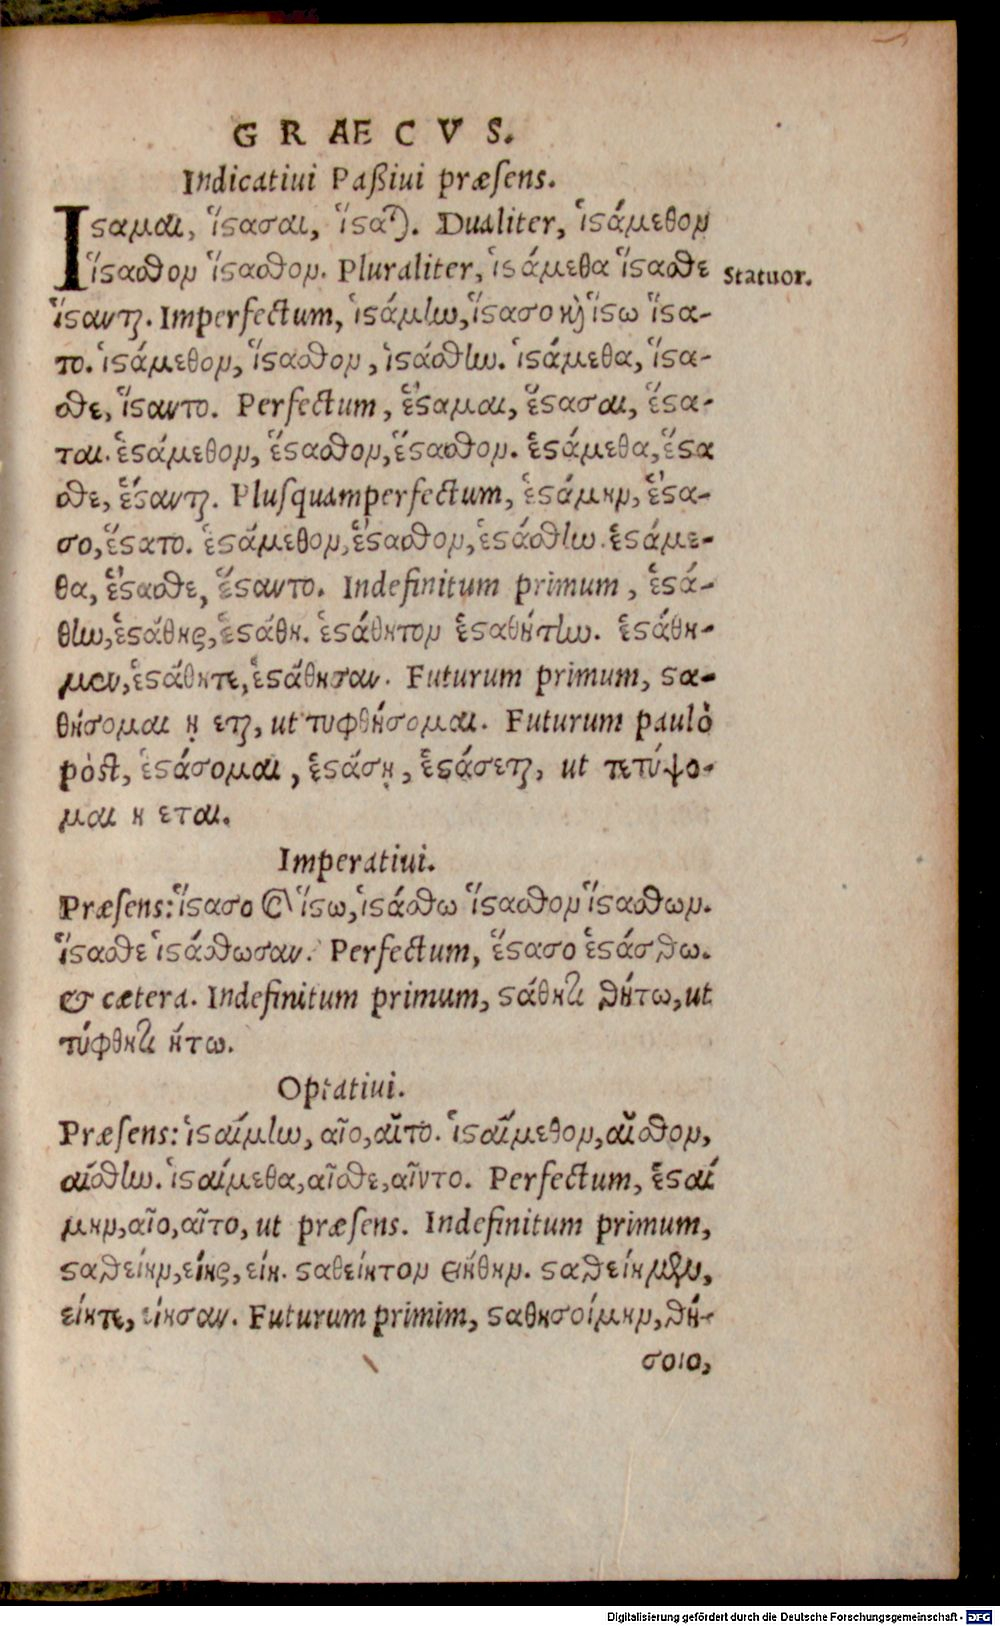 GRAECVS.
Indicatiui Paßiui præsens.
Ιϛαμαι, ἵϛασαι, ἵϛαται. Dualiter, ἱϛάμεθον
ἵϛασθον ἵϛασθον. Pluraliter, ἱϛάμεθα ἵϛασθε
Statuor.
ἵϛανται. Imperfectum, ἱϛάμην, ἵϛασο καὶ ἵϛω ἵϛα-
το. ἱϛάμεθον, ἵϛασθον, ἱϛάσθην. ἱϛάμεθα, ἵϛα-
σθε, ἵϛαντο. Perfectum, ἕϛαμαι, ἕϛασαι, ἕϛα-
ται. ἑϛάμεθον, ἕϛασθον, ἕϛασθον. ἑϛάμεθα, ἕϛα
σθε, ἕϛανται. Plusquamperfectum, ἑϛάμην, ἕϛα-
σο, ἕϛατο. ἑϛάμεθον, ἕϛασθον, ἑϛάσθην. ἑϛάμε-
θα, ἕϛασθε, ἕϛαντο. Indefinitum primum, ἐϛά-
θην, ἐϛάθης, ἐϛάθη. ἐϛάθητον ἐϛαθήτην. ἐϛάθη-
μεν, ἐϛάθητε, ἐϛάθησαν. Futurum primum, ϛα-
θήσομαι ῃ εται, ut τυφθήσομαι. Futurum paulò
pòst, ἑϛάσομαι, ἑϛάσῃ, ἑϛάσεται, ut τετύψο-
μαι η εται.
Imperatiui.
Præsens: ἵϛασο & ἵϛω, ἱϛάσθω ἵϛασθον ἵϛασθων.
ἵϛασθε ἱϛάσθωσαν. Perfectum, ἕϛασο ἑϛάσθω.
& cætera. Indefinitum primum, ϛάθητι θήτω, ut
τύφθητι ήτω.
Optatiui.
Præsens: ἱϛαίμην, αῖο, αῖτο. ἱϛαίμεθον, αῖσθον,
αίσθην. ἱϛαίμεθα, αῖσθε, αῖντο. Perfectum, ἑϛαί
μην, αῖο, αῖτο, ut præsens. Indefinitum primum,
ϛαθείην, είης, είη. ϛαθείητον θήθην. ϛαθείημεν,
είητε, είησαν. Futurum primim, ϛαθησοίμην, θή-
σοιο,
Digitalisierung gefördert durch die Deutsche Forschungsgemeinschaft - DFG